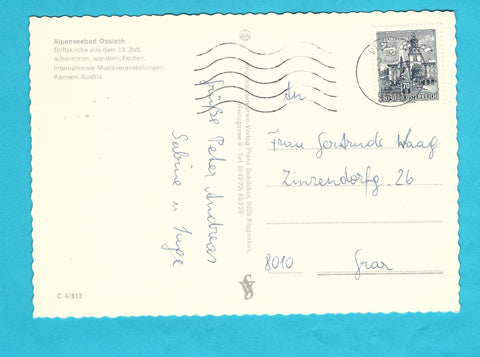 Alpenseebad Ossiach
Stiftskirche aus dem 13. Jhdt.
schwimmen, wandern, fischen.
Internationale Musikveranstaltungen.
Kärnten, Austria.
Grüße Peter Andreas
Sabine u. Inge
Verlag Franz Schilcher 9020 Klagenfurt,
An
Frau Gertrude Waag
Zinzendorfg. 26
8010 Graz
C 4/812
REPUBLIK ÖSTERREICH